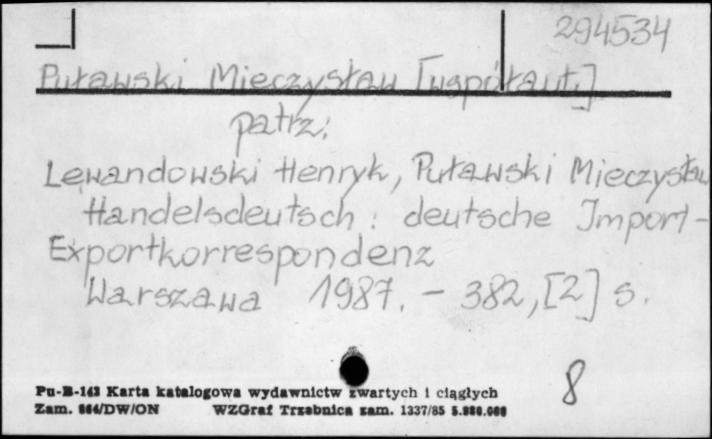 294534
Puławski Mieczysław [współaut.]
patrz:
Lewandowski Henryk, Puławski Mieczysław
Handelsdeutsch : deutsche Import-
Exportkorrespondenz
Warszawa 1987. - 382, [2] s.
8
Pu-B-143 Karta katalogowa wydawnictw zwartych i ciągłych
Zam. 664/DW/ON WZGraf Trzebnica zam. 1337/85 5.000.000